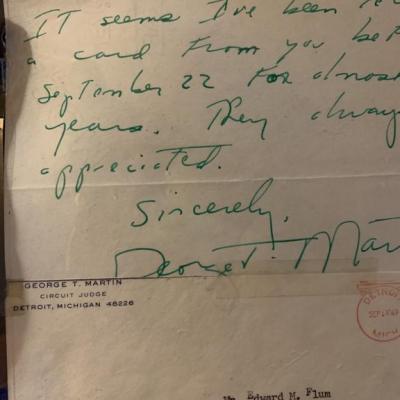 IT seems I've been
a card from you
September 22 for almos
years. They always
appreciated.
Sincerely,
George T. Mart
GEORGE T. MARTIN
CIRCUIT JUDGE
DETROIT, MICHIGAN 48226
DETROIT
SEP
MICH
Mr. Edward M. Flum